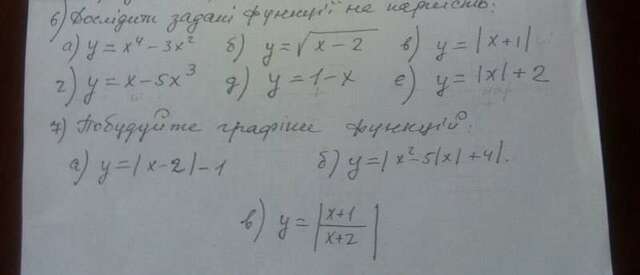 6) Дослідити задані функції на парність:
а) y = x⁴ - 3x² б) y = √(x - 2) в) y = |x+1|
г) y = x - 5x³ д) y = 1 - x е) y = |x| + 2
7) Побудуйте графіки функцій:
а) y = |x - 2| - 1 б) y = |x² - 5|x| + 4|.
в) y = |(x+1)/(x+2)|